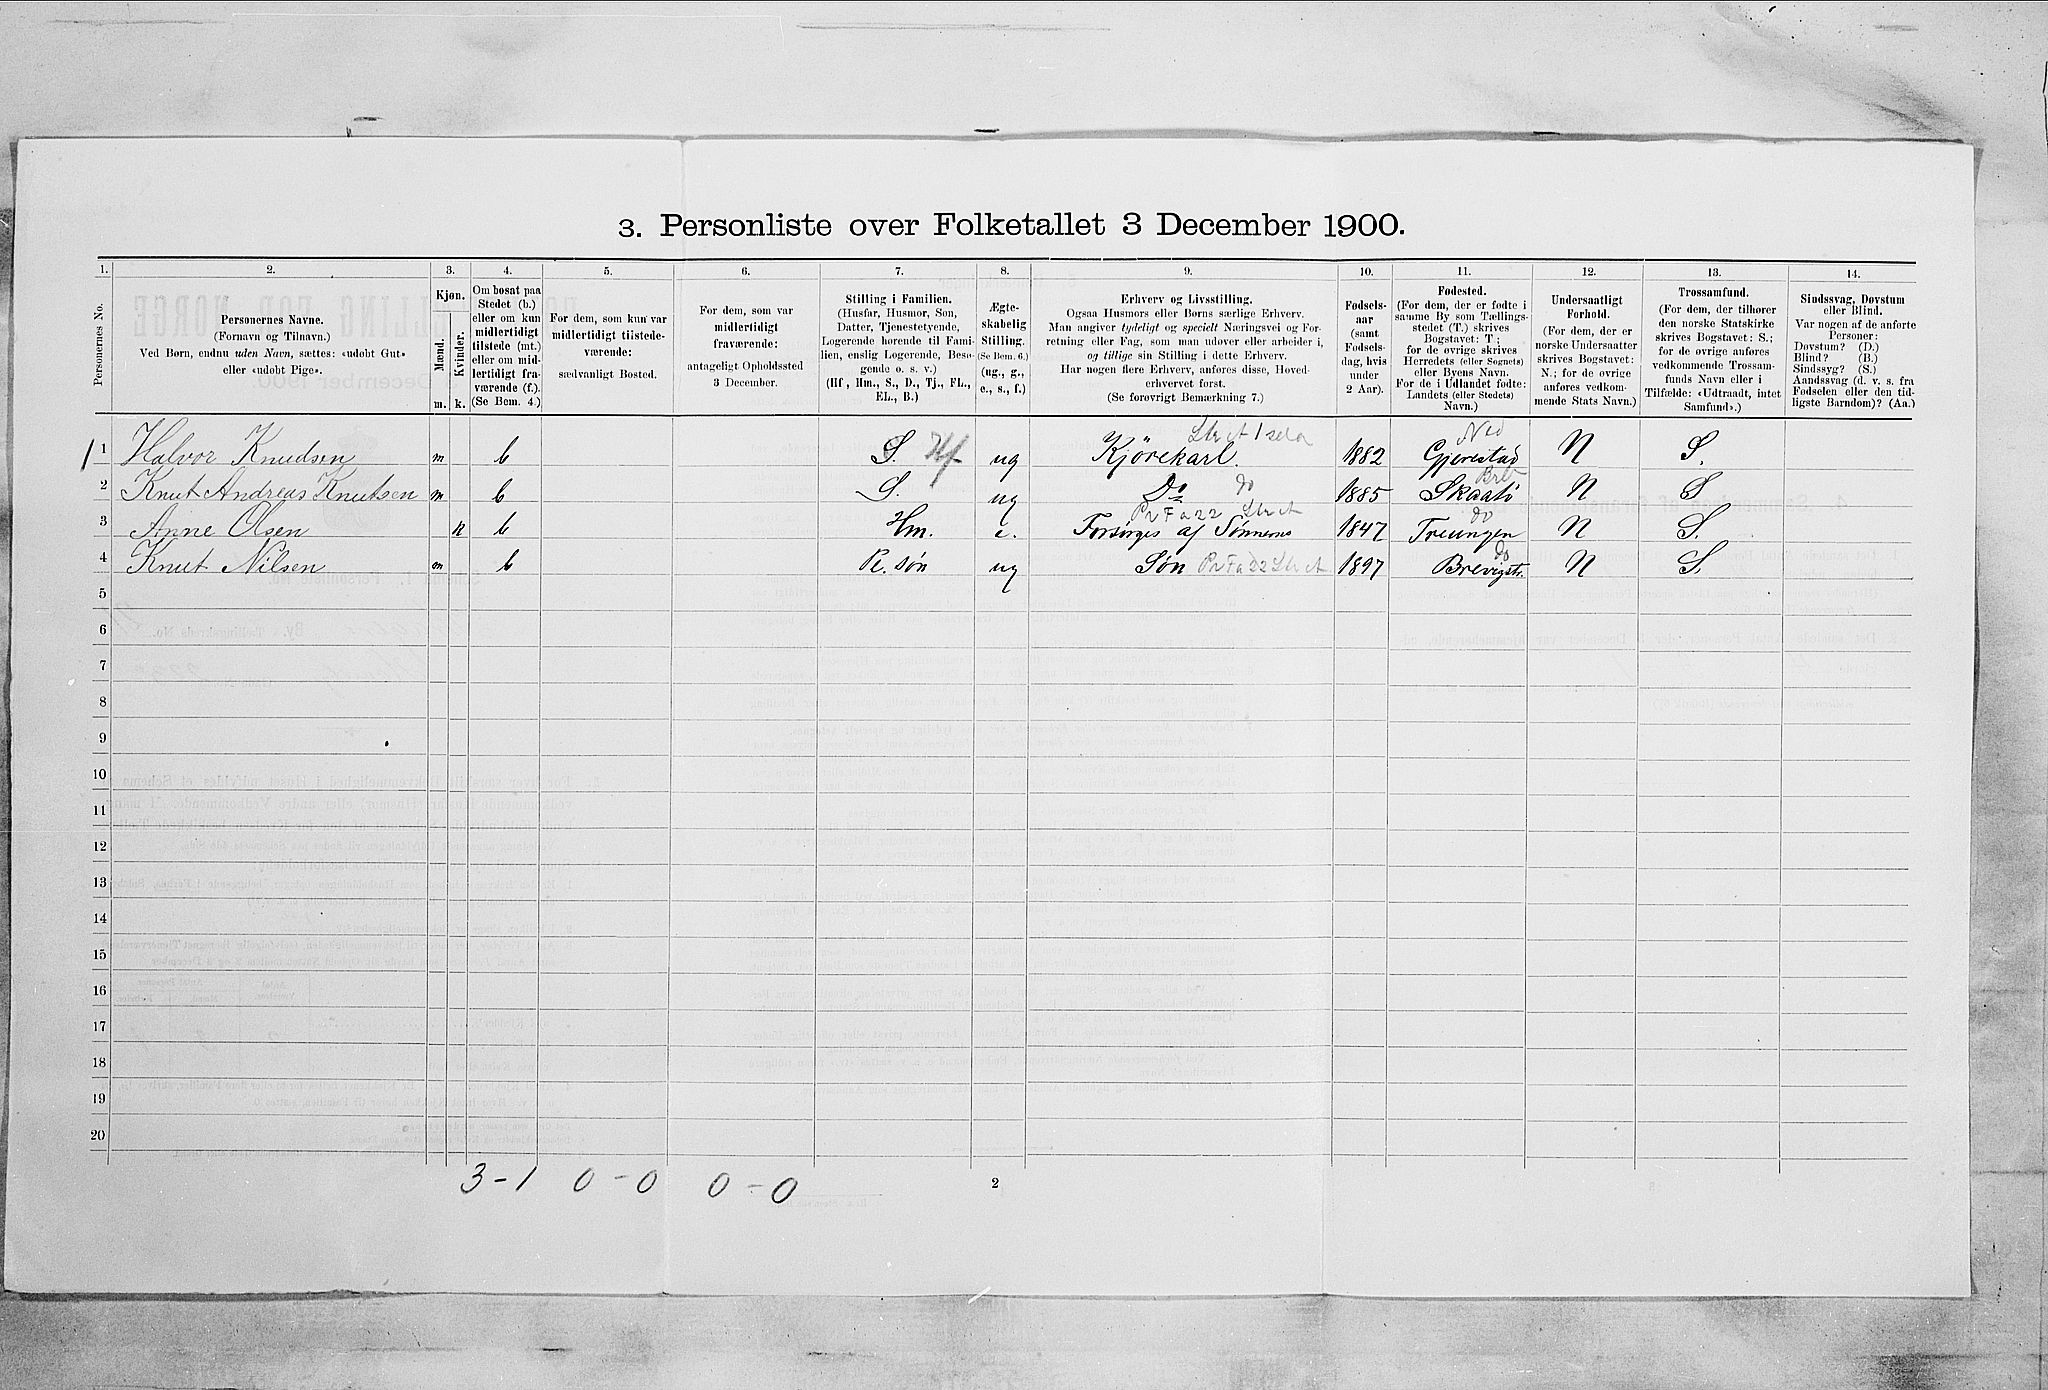 3. Personliste over Folketallet 3 December 1900.
1. 2. 3. 4. 5. 6. 7. 8. 9. 10. 11. 12. 13. 14.
Personernes No.
Personernes Navne.
(Fornavn og Tilnavn.)
Ved Børn, endnu uden Navn, sættes: «udøbt Gut»
eller «udøbt Pige».
Kjøn.
Mænd.
Kvinder.
m. k.
Om bosat paa
Stedet (b.)
eller om kun
midlertidigt
tilstede (mt.)
eller om mid-
lertidigt fra-
værende (f.).
(Se Bem. 4.)
For dem, som kun var
midlertidigt tilstede-
værende:
sædvanligt Bosted.
For dem, som var
midlertidigt
fraværende:
antageligt Opholdssted
3 December.
Stilling i Familien.
(Husfar, Husmor, Søn,
Datter, Tjenestetyende,
Logerende hørende til Fami-
lien, enslig Logerende, Besø-
gende o. s. v.)
(Hf., Hm., S., D., Tj., FL.,
EL., B.)
Ægte-
skabelig
Stilling.
(Se Bem. 6.)
(ug., g.,
e., s., f.)
Erhverv og Livsstilling.
Ogsaa Husmors eller Børns særlige Erhverv.
Man angiver tydeligt og specielt Næringsvei og For-
retning eller Fag, som man udøver eller arbeider i,
og tillige sin Stilling i dette Erhverv.
Har nogen flere Erhverv, anføres disse, Hoved-
erhvervet først.
(Se forøvrigt Bemærkning 7.)
Fødsels-
aar
(samt
Fødsels-
dag, hvis
under
2 Aar).
Fødested.
(For dem, der er fødte i
samme By som Tællings-
stedet (T.) skrives
Bogstavet: T;
for de øvrige skrives
Herredets (eller Sognets)
eller Byens Navn.
For de i Udlandet fødte:
Landets (eller Stedets)
Navn.)
Undersaatligt
Forhold.
(For dem, der er
norske Undersaatter
skrives Bogstavet:
N.; for de øvrige
anføres vedkom-
mende Stats Navn.)
Trossamfund.
(For dem, der tilhører
den norske Statskirke
skrives Bogstavet: S.;
for de øvrige anføres
vedkommende Trossam-
funds Navn eller i
Tilfælde: «Udtraadt, intet
Samfund».)
Sindssvag, Døvstum
eller Blind.
Var nogen af de anførte
Personer:
Døvstum? (D.)
Blind? (B.)
Sindssyg? (S.)
Aandssvag (d. v. s. fra
Fødselen eller den tid-
ligste Barndom)? (Aa.)
1 Halvor Knudsen m b S. Hf ug Kjørekarl. 1882 Gjerestad N S.
2 Knut Andreas Knutsen m b S. ug Do do 1885 Skaatø N S
3 Anne Olsen k b Hm. e. Forsørges af Sønnerne 1847 Treungen do N S.
4 Knut Nilsen m b Pl. søn ug Søn 1897 Brevigstr. do N S.
5
6
7
8
9
10
11
12
13
14
15
16
17
18
19
20
3-1 0-0 0-0
2